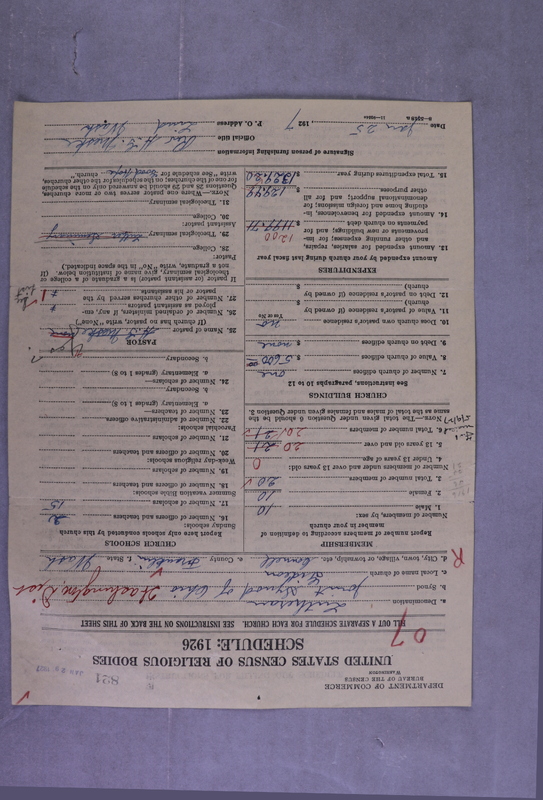 DEPARTMENT OF COMMERCE
BUREAU OF THE CENSUS
WASHINGTON
821
UNITED STATES CENSUS OF RELIGIOUS BODIES
SCHEDULE: 1926
FILL OUT A SEPARATE SCHEDULE FOR EACH CHURCH. SEE INSTRUCTIONS ON THE BACK OF THIS SHEET
a. Denomination Lutheran
b. Synod Joint Synod of Ohio Washington Dist
c. Local name of church
d. City, town, village, or township, etc. Connell e. County Franklin f. State Wash
MEMBERSHIP
Report here number according to definition of member in your church
Number of members, by sex:
1. Male 10
2. Female 10
3. Total number of members 20
Number of members under and over 13 years old:
4. Under 13 years of age 0
5. 13 years old and over 20 21
6. Total number of members 20 21
NOTE.—The total given under Question 6 should be the same as the total of males and females given under Question 3.
CHURCH BUILDINGS
See Instructions, paragraphs 10 to 12
7. Number of church edifices one
8. Value of church edifices $ 5600
9. Debt on church edifices $ none
10. Does church own pastor's residence no
Yes or No
11. Value of pastor's residence (if owned by church) $
12. Debt on pastor's residence (if owned by church) $
EXPENDITURES
Amount expended by your church during last fiscal year
13. Amount expended for salaries, repairs, and other running expenses; for improvements or new buildings; and for payments on church debt 1200
14. Amount expended for benevolence, including home and foreign missions; for denominational support; and for all other purposes.
15. Total expenditures during year
CHURCH SCHOOLS
Report here only schools conducted by this church
Sunday schools:
16. Number of officers and teachers 2
17. Number of scholars 15
Summer vacation Bible schools:
18. Number of officers and teachers
19. Number of scholars
Week-day religious schools:
20. Number of officers and teachers
21. Number of scholars
Parochial schools:
22. Number of administrative officers
23. Number of teachers—
a. Elementary (grades 1 to 8)
b. Secondary
24. Number of scholars—
a. Elementary (grades 1 to 8)
b. Secondary
PASTOR
25. Name of pastor
(If church has no pastor, write "None")
26. Number of ordained ministers, if any, employed as assistant pastors
27. Number of other churches served by the pastor or his assistants 1
If pastor (or assistant pastor) is a graduate of a college or theological seminary, give name of institution below. (If not a graduate, write "No" in the space indicated.)
Pastor:
28. College
29. Theological seminary
Assistant pastor:
30. College
31. Theological seminary
NOTE.—Where one pastor serves two or more churches, Questions 28 and 29 should be answered only on the schedule for one of the churches; on the schedules for the other churches, write "See schedule for Good Hope church."
Signature of person furnishing information
Official title
P. O. Address Lind Wash
Date Jan 25, 1927